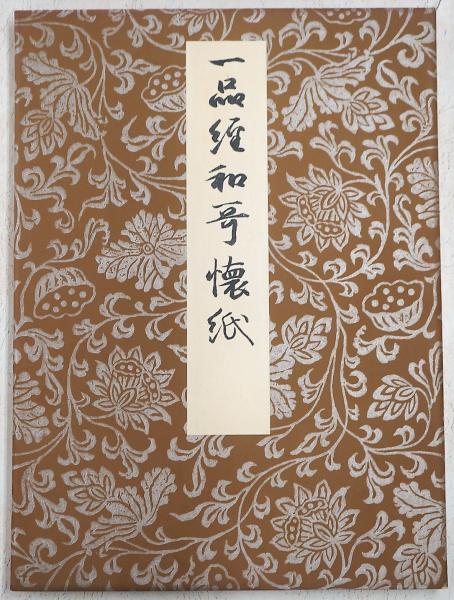 一品経和哥懐紙